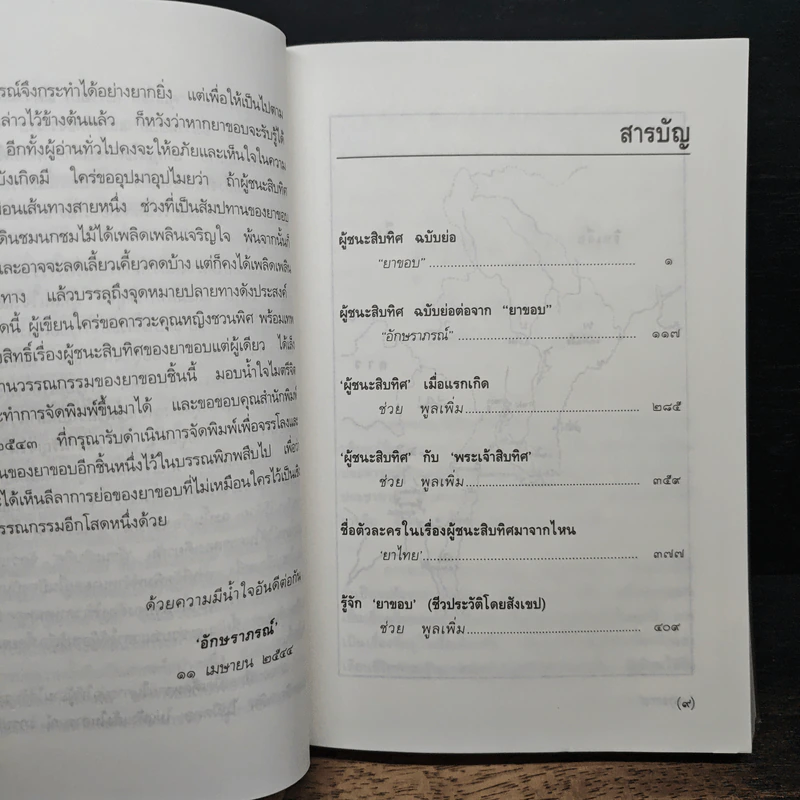 รณ์จึงกระทำได้อย่างยากยิ่ง แต่เพื่อให้เป็นไปตาม
ล่าวไว้ข้างต้นแล้ว ก็หวังว่าหากยาขอบจะรับรู้ได้
อีกทั้งผู้อ่านทั่วไปคงจะให้อภัยและเห็นใจในความ
บังเกิดมี ใคร่ขออุปมาอุปไมยว่า ถ้าผู้ชนะสิบทิศ
มือนเส้นทางสายหนึ่ง ช่วงที่เป็นสัมปทานของยาขอบ
ดินชมนกชมไม้ได้เพลิดเพลินเจริญใจ พ้นจากนั้นก็
และอาจจะลดเลี้ยวเคี้ยวคดบ้าง แต่ก็คงได้เพลิดเพลิน
ทาง แล้วบรรลุถึงจุดหมายปลายทางดังประสงค์
ดนี้ ผู้เขียนใคร่ขอคารวะคุณหญิงชวนพิศ พร้อมทายาท
สิทธิ์เรื่องผู้ชนะสิบทิศของยาขอบแต่ผู้เดียว ได้เล็ง
านวรรณกรรมของยาขอบชิ้นนี้ มอบน้ำใจไมตรีจิต
ะทำการจัดพิมพ์ขึ้นมาได้ และขอขอบคุณสำนักพิมพ์
๒๕๔๓ ที่กรุณารับดำเนินการจัดพิมพ์เพื่อจรรโลงและ
นของยาขอบอีกชิ้นหนึ่งไว้ในบรรณพิภพสืบไป เพื่อว่า
ะได้เห็นลีลาการย่อของยาขอบที่ไม่เหมือนใครไว้เป็น
รรณกรรมอีกโสดหนึ่งด้วย
ด้วยความมีน้ำใจอันดีต่อกัน
‘อักษราภรณ์’
๑๑ เมษายน ๒๕๔๔
สารบัญ
ผู้ชนะสิบทิศ ฉบับย่อ
“ยาขอบ” ๑
ผู้ชนะสิบทิศ ฉบับย่อต่อจาก “ยาขอบ”
“อักษราภรณ์” ๑๑๗
‘ผู้ชนะสิบทิศ’ เมื่อแรกเกิด
ช่วย พูลเพิ่ม ๒๘๕
‘ผู้ชนะสิบทิศ’ กับ ‘พระเจ้าสิบทิศ’
ช่วย พูลเพิ่ม ๓๕๙
ชื่อตัวละครในเรื่องผู้ชนะสิบทิศมาจากไหน
‘ยาไทย’ ๓๗๗
รู้จัก ‘ยาขอบ’ (ชีวประวัติโดยสังเขป)
ช่วย พูลเพิ่ม ๔๐๙
(๙)